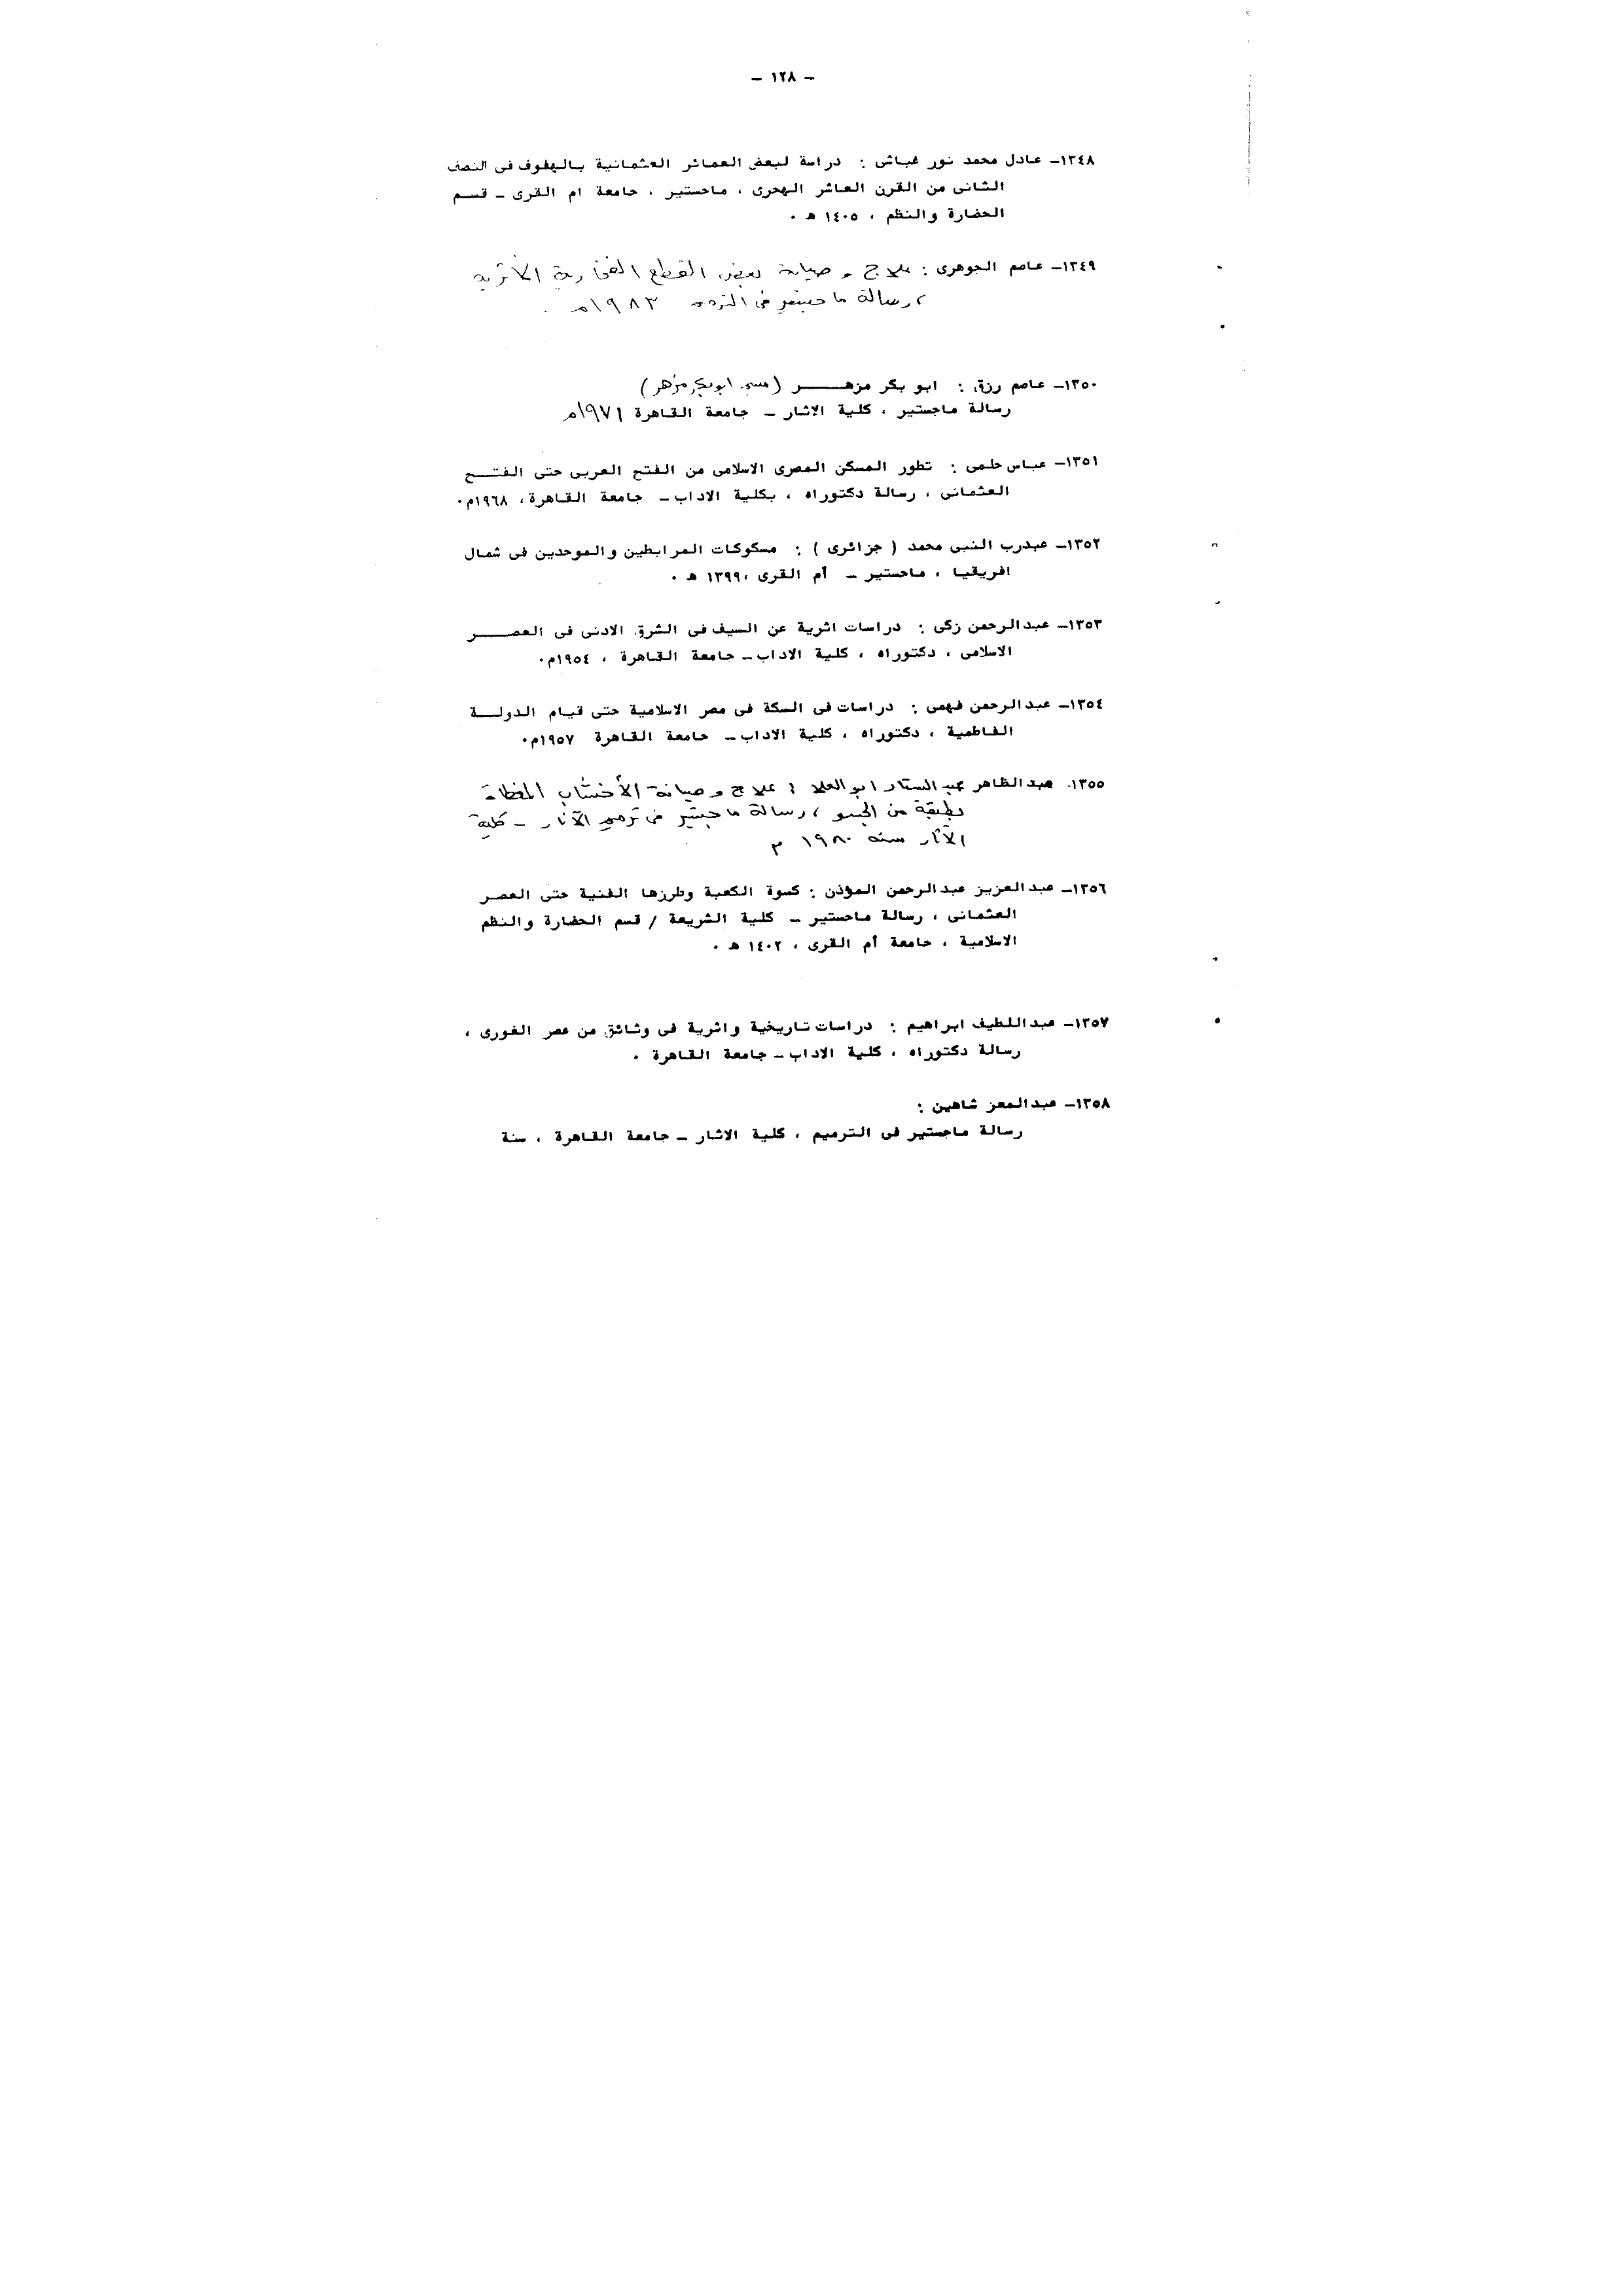 - ١٢٨ -
١٣٤٨- عادل محمد نور غباشى : دراسة لبعض العمائر العثمانية بالهفوف فى النصف
الثانى من القرن العاشر الهجرى ، ماجستير ، جامعة ام القرى - قسم
الحضارة والنظم ، ١٤٠٥ هـ .
١٣٤٩- عاصم الجوهرى : علاج و صيانة بعض القطع الفخارية الأثرية
، رسالة ماجستير فى ١٩٨٣م .
١٣٥٠- عاصم رزق : ابو بكر مزهــــر ( ابوبكر مزهر )
رسالة ماجستير ، كلية الاثار - جامعة القاهرة ١٩٧١م
١٣٥١- عباس حلمى : تطور المسكن المصرى الاسلامى من الفتح العربى حتى الفتــح
العثمانى ، رسالة دكتوراه ، بكلية الاداب - جامعة القاهرة، ١٩٦٨م.
١٣٥٢- عبدرب النبى محمد ( جزائرى ) : مسكوكات المرابطين والموحدين فى شمال
افريقيا ، ماجستير - أم القرى ،١٣٩٩ هـ .
١٣٥٣- عبدالرحمن زكى : دراسات اثرية عن السيف فى الشرق الادنى فى العصـــر
الاسلامى ، دكتوراه ، كلية الاداب - جامعة القاهرة ، ١٩٥٤م.
١٣٥٤- عبدالرحمن فهمى : دراسات فى السكة فى مصر الاسلامية حتى قيام الدولــة
الفاطمية ، دكتوراه ، كلية الاداب - جامعة القاهرة ١٩٥٧م.
١٣٥٥. عبدالظاهر عبد الستار ابو العلا : علاج و صيانة الأخشاب المغطاة
بطبقة من الجسو ، رسالة ماجستير فى ترميم الآثار - كلية
الآثار سنه ١٩٨٠ م
١٣٥٦- عبدالعزيز عبدالرحمن المؤذن : كسوة الكعبة وطرزها الفنية حتى العصر
العثمانى ، رسالة ماجستير - كلية الشريعة / قسم الحضارة والنظم
الاسلامية ، جامعة أم القرى ، ١٤٠٢ هـ .
١٣٥٧- عبداللطيف ابراهيم : دراسات تاريخية واثرية فى وثائق من عصر الغورى ،
رسالة دكتوراه ، كلية الاداب - جامعة القاهرة .
١٣٥٨- عبدالمعز شاهين :
رسالة ماجستير فى الترميم ، كلية الاثار - جامعة القاهرة ، سنة